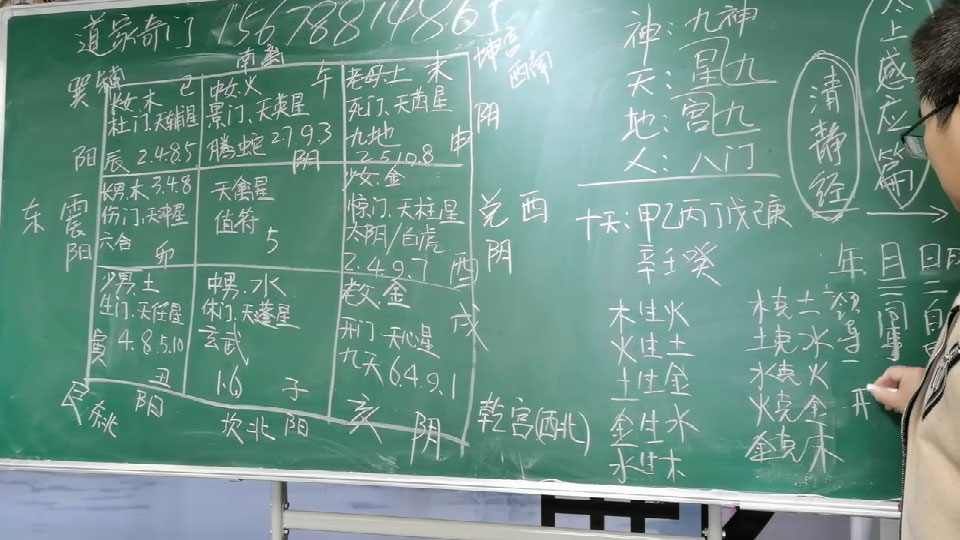 道家奇门 15678814865
南离
巽
巳
少女.木
杜门.天辅星
辰 2.4.8.5
阳
中女.火 午
景门.天英星
腾蛇 2793
阴
老母.土 未
死门.天芮星
九地 申
2.5.10.8
坤宫
西南
阴
东 震
阳
长男.木 3.4.8
伤门.天冲星
六合 卯
天禽星
值符
5
少女:金
惊门.天柱星
太阴/白虎
2.4.9.7 酉
兑 西
阴
少男.土
生门.天任星
寅 4.8.5.10
丑
中男.水
休门.天蓬星
玄武
1.6 子
老父.金
开门.天心星
九天 6.4.9.1
戌
阳
坎北阳
亥 阴
乾宫(西北)
神:九神
天:星九
地:宫九
人:八门
十天:甲乙丙丁戊己庚
辛壬癸
木生火
火生土
土生金
金生水
水生木
木克土
土克水
水克火
火克金
金克木
清静经
太上感应篇
年 月 日 时
领导
同事
开